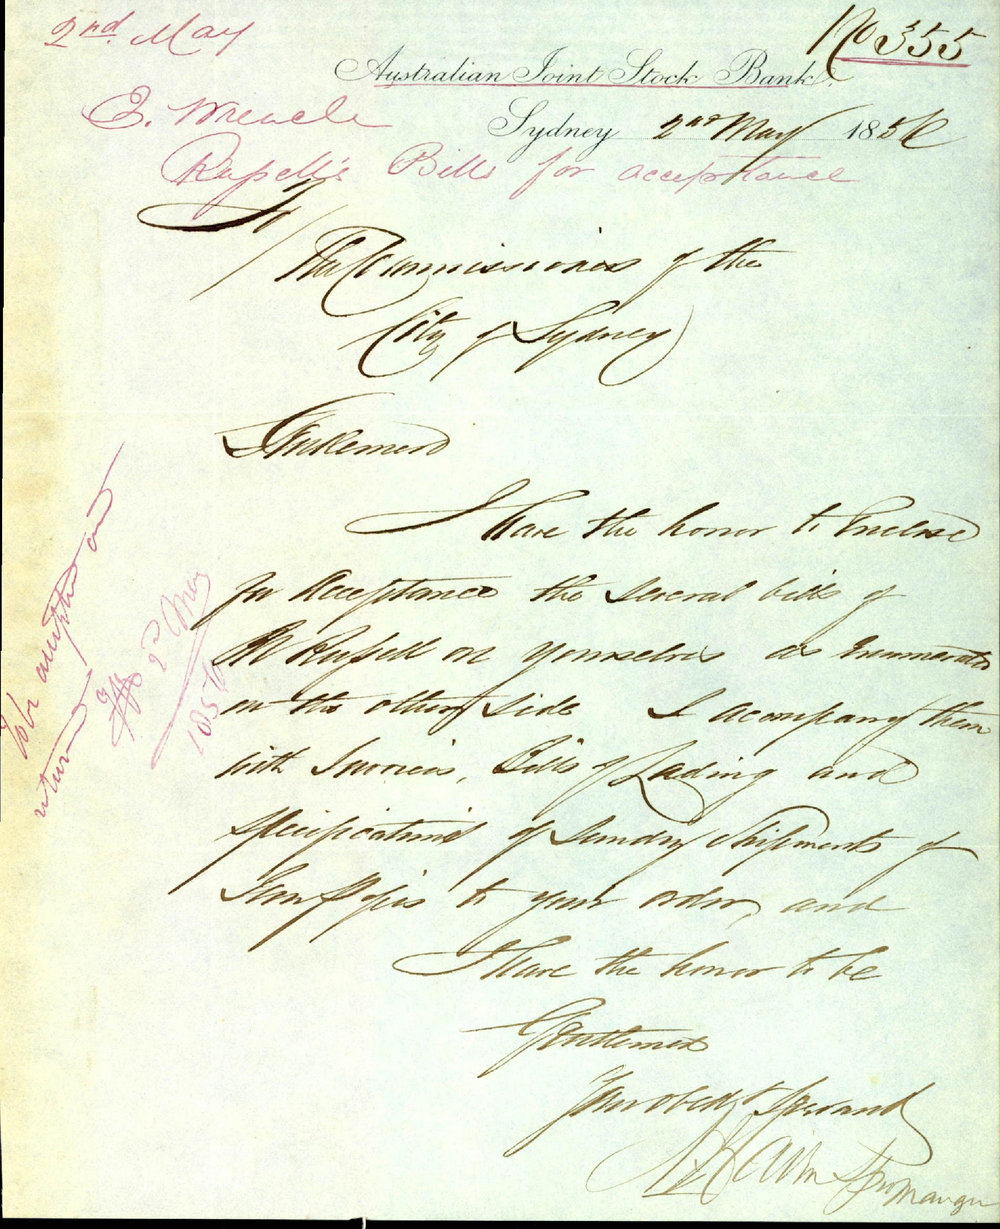 2nd. May
No 355
Australian Joint Stock Bank.
Sydney 2nd May 1856
Russell's Bills for acceptance
To/
The Commissioners of the
City of Sydney
Gentlemen
I have the honor to Enclose
for Acceptance the several bills of
Russell on yourselves as Enumerated
on the other side I accompany them
with Invoices, Bills of Lading and
specifications of Sundry Shipments of
Iron Pipes to your order, and
I have the honor to be
Gentlemen
Your obedt Servant
Manager
To be accepted and
returned
2d May
1856